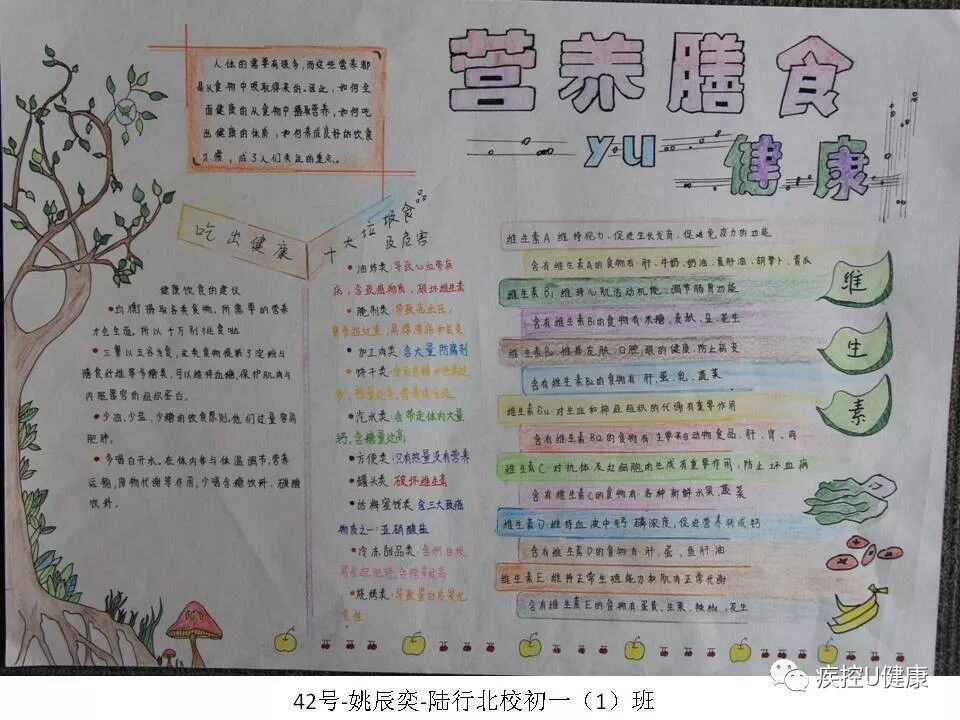 营养膳食
yu 健康
人体的需要有很多,而这些营养都
是从食物中吸取得来的。因此,如何全
面健康的从食物中摄取营养,如何吃
出健康的体质,如何养成良好的饮食
习惯,成了人们关注的重点。
吃出健康
健康饮食的建议:
●均衡摄取各类食物,所需要的营养
才会全面,所以千万别挑食啦
●三餐以五谷为食,
膳食纤维等多糖类,可以维持血糖,保护肌肉与
内脏器官的组织蛋白。
●少油,少盐,少糖的饮食原则,他们过量等易
肥胖。
●多喝白开水。在体内参与体温调节,营养
运输,废物代谢等作用,少喝含糖饮料、碳酸
饮料。
十大垃圾食品
及危害
●油炸类:导致心血管疾
病,含致癌物质,破坏维生素
●腌制类:导致高血压,
●加工肉类:含大量防腐剂
●饼干类:
●汽水类:会带走体内大量
钙,含糖量过高
●方便类:只有热量没有营养
●罐头类:破坏维生素
●话梅蜜饯类:含三大致癌
物质之一:亚硝酸盐
●冷冻甜品类:含奶油极
易引起肥胖,含糖量过高
●烧烤类:导致蛋白质炭化
变性
维生素A:维持视力,促进生长发育,促进免疫力的功能
含有维生素A的食物有:肝、牛奶、奶油、鱼肝油、胡萝卜、黄瓜
维生素B1:维持心肌活动机能,调节肠胃功能
含有维生素B1的食物有:米糖,麦麸,豆,花生
维生素B2:维养皮肤,口腔,眼的健康,防止病变
含有维生素B2的食物有:肝,蛋,乳,蔬菜
维生素B12:对生血和神经组织的代谢有重要作用
含有维生素B12的食物有:主要来自动物食品:肝、胃、肉
维生素C:对抗体及红细胞的生成有重要作用,防止坏血病
含有维生素C的食物有:各种新鲜水果,蔬菜
维生素D:维持血液中钙、磷浓度,促进营养转成钙
含有维生素D的食物有:肝,蛋,鱼肝油
维生素E:维持正常生殖能力和肌肉正常代谢
含有维生素E的食物有:蛋黄,生菜,辣椒,花生
维
生
素
疾控U健康
42号-姚辰奕-陆行北校初一（1）班